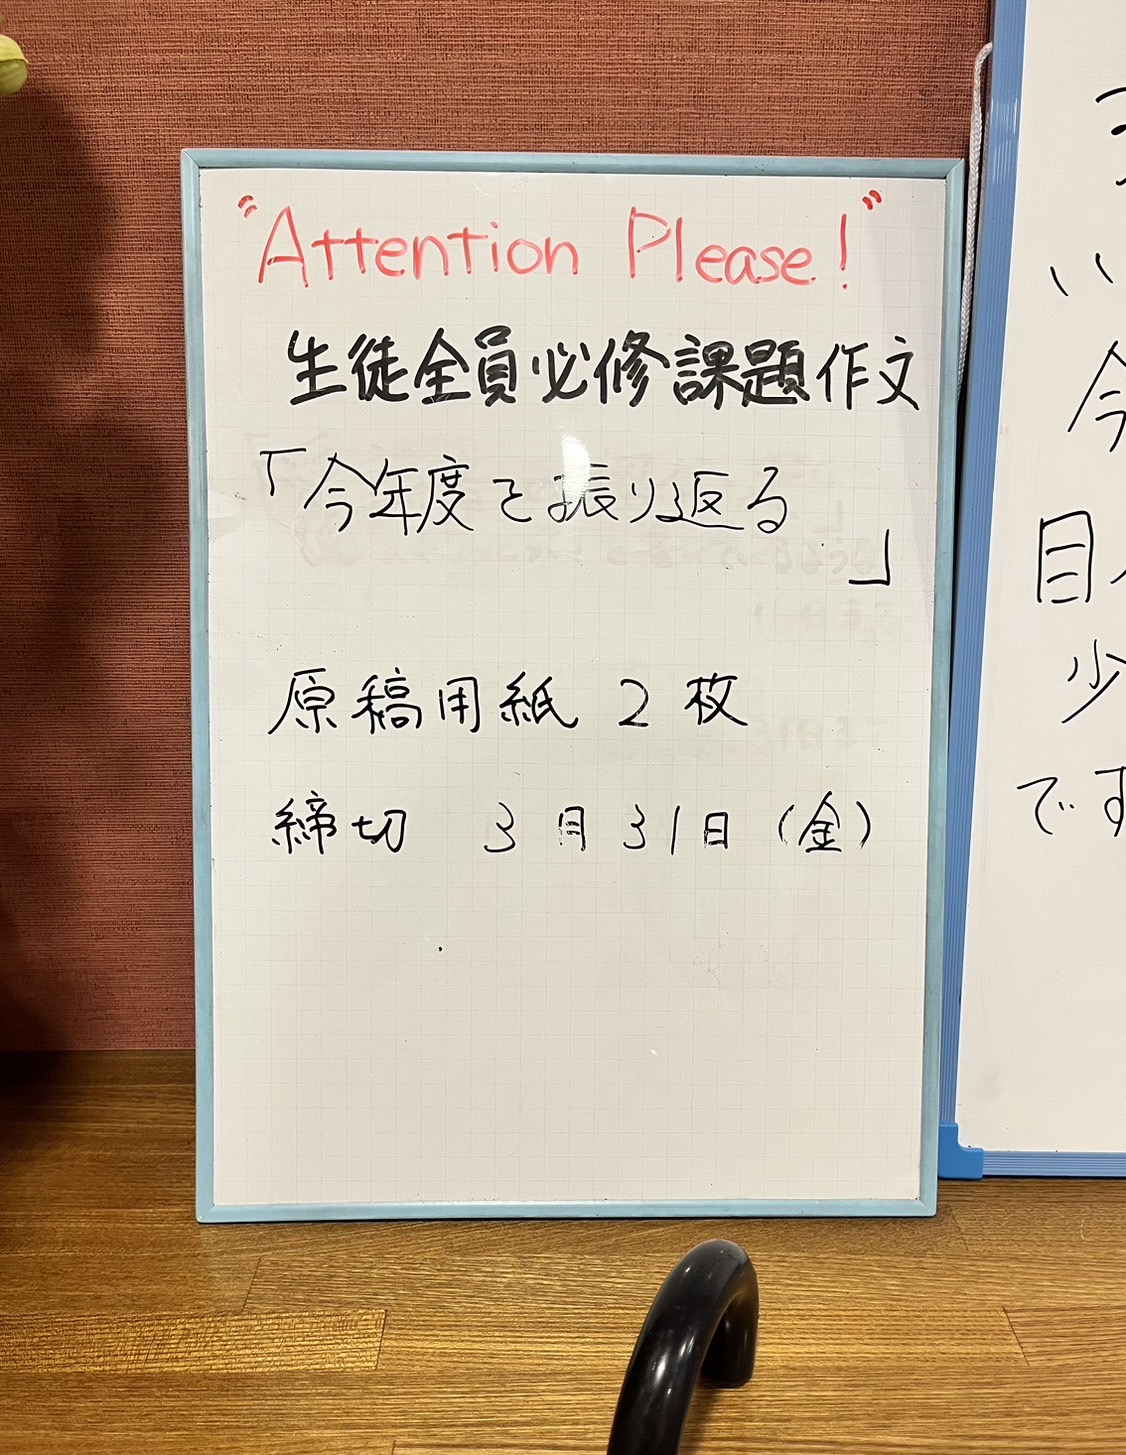 "Attention Please!"
生徒全員必修課題作文
「今年度を振り返る
」
原稿用紙 2枚
締切 3月31日(金)
今
目
少
です